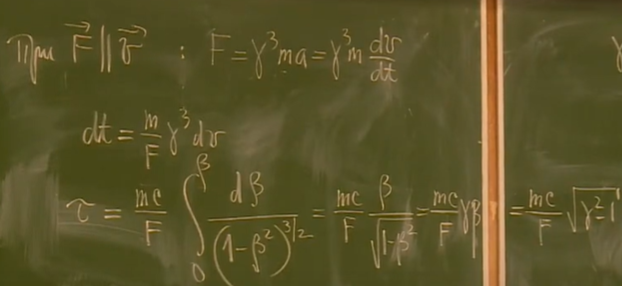 При F⃗ || v⃗ : F = γ³ma = γ³m dv/dt
dt = m/F γ³ dv
τ = mc/F ∫₀^β dβ/(1-β²)^{3/2} = mc/F β/√(1-β²) = mc/F γβ = mc/F √(γ²-1)